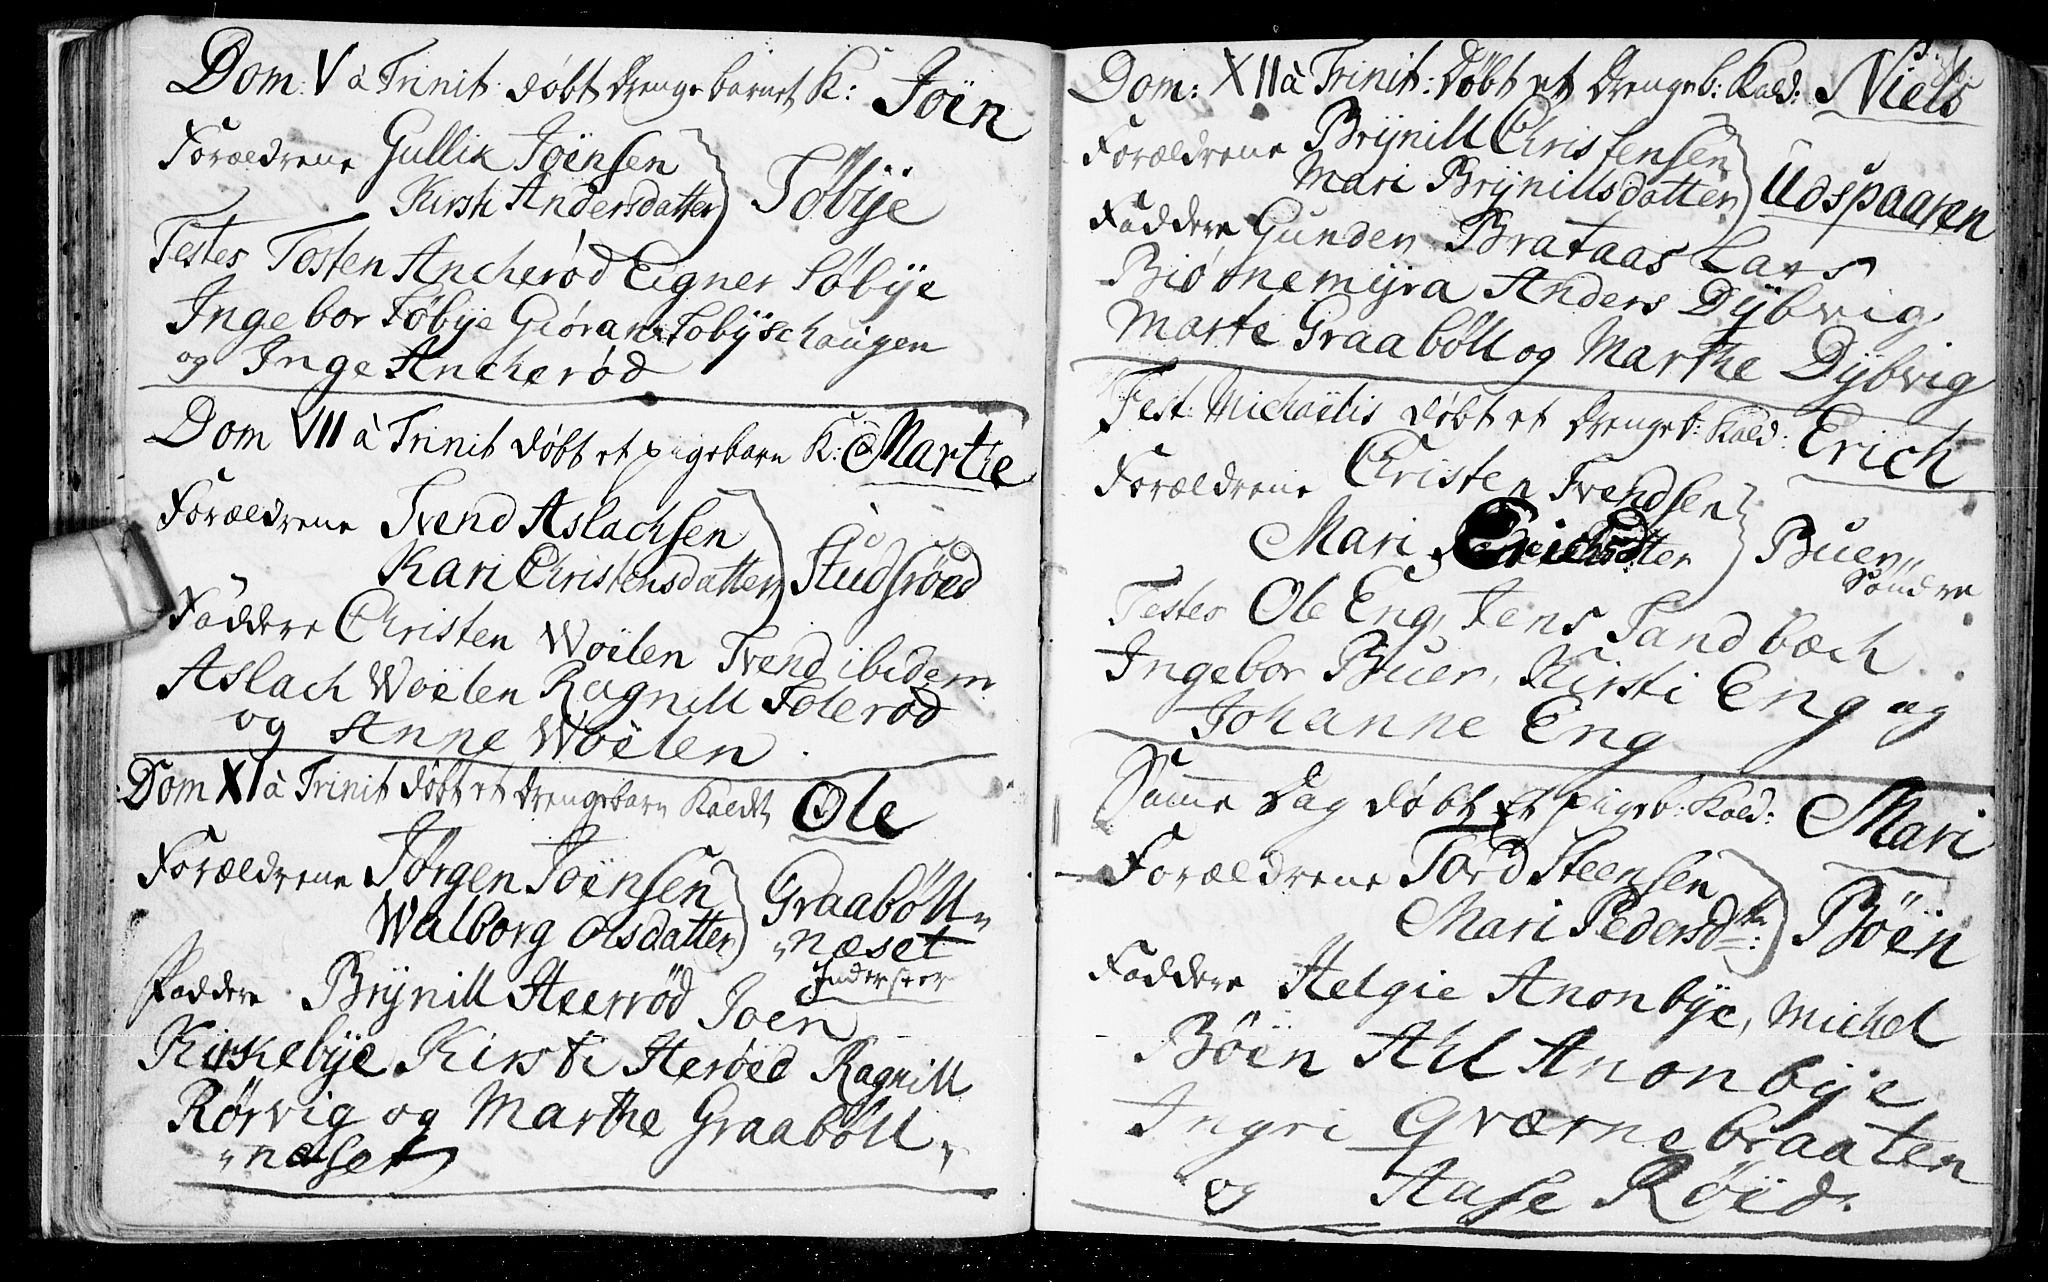 Dom: V à Trinit: døbt drengebarnet K: Joën
Forældrene Gullik Joënsen
Kirsti Andersdatter
Søbÿe
Testes Tosten Ancherød Eigner Søbÿe
Ingebor Søbye Giøran Sobÿschaugen
og Inge Ancherød
Dom VII à Trinit døbt et pigebarn K: Marthe
Forældrene Svend Aslachsen
Kari Christensdatter
Studsrøed
Faddere Christen Woëlen Svend ibidem
Aslach Woëlen Ragnill Folerød
og Anne Woëlen.
Dom XI à Trinit døbt et drengebarn Kaldt Ole
Forældrene Jørgen Joënsen
Walborg Olsdatter
Graabøll„
„næset
Inderster
Faddere Brÿnill Steerrød Joen
Kirkebÿe Kirsti Sterøed Ragnill
Rørvig og Marthe Graabøll„
„næset
Dom: XII à Trinit: døbt et drengeb: Kald: Niels
Forældrene Brÿnill Christensen
Mari Brÿnillsdatter
Udspaaren
Faddere Gunder Brataas Lars
Biørnemÿra Anders Dÿbvig
Marte Graabøll og Marthe Dÿbvig
Fest: Michaëlis døbt et drengeb: Kald: Erich
Forældrene Christen Svendsen
Mari Erichsdatter
Buer„
Søndre
Testes Ole Eng, Jens Sandbæch
Ingebor Buer, Kirsti Eng og
Johanne Eng
Samme Dag døbt Et pigeb: Kald: Mari
Forældrene Tord Steensen
Mari Pedersdtr:
Bøën
Faddere Helgie Anonbÿe, Michel
Bøën Ahl Anonbÿe
Ingri Qværnebraaten
og Aase Røëd.